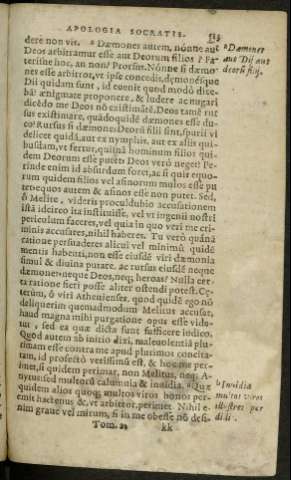 APOLOGIA SOCRATIS. 513
dere non vis. ᵃ Dæmones autem, nónne aut
Deos arbitramur esse aut Deorum filios? Fa-
terisne hoc, an non? Prorsus. Nónne si dæmo-
nes esse arbitror, vt ipse concedis, dęmonésque
Dii quidam sunt, id euenit quod modò dice-
bā, ænigmate proponere, & ludere ac nugari
dicēdo me Deos nō existimāre, Deos tamē rur
sus existimare, quādoquidē dæmones esse du-
co? Rursus si dæmones Deorū filii sint, spurii vi
delicet quidā, aut ex nymphis, aut ex aliis qui-
busdam, vt fertur, quisnā hominum filios qui-
dem Deorum esse putet: Deos verò neget? Pe-
rinde enim id absurdum foret, ac si quis equo-
rum quidem filios vel asinorum mulos esse pu
tet: equos autem & asinos esse non putet. Sed,
ô Melite, videris proculdubio accusationem
istā idcirco ita instituisse, vel vt ingenii nostri
periculum faceres, vel quia in quo veri me cri-
minis accusares, nihil haberes. Tu verò quānā
ratione persuaderes alicui vel minimū quidē
mentis habenti, non esse eiusdē viri dæmonia
simul & diuina putare, ac rursus eiusdē neque
dæmones neque Deos, neq; heroas? Nulla cer-
ta ratione fieri posse aliter ostendi potest. Cę-
terùm, ô viri Athenienses, quod quidē ego nō
deliquerim quemadmodum Melitus accusat,
haud magna mihi purgatione opus esse vide-
tur, sed ea quæ dicta sunt sufficere iudico.
Quod autem ab initio dixi, maleuolentiā plu-
rimam esse contra me apud plurimos concita-
tam, id profectò verissimū est, & hoc me per-
imet, si quidem perimar, non Melitus, neq; A-
nytus: sed multorū calumnia & inuidia. ᵇ Quæ
quidem alios quoq; multos viros bonos per-
emit hactenus &, vt arbitror, perimet. Nihil e-
nim graue vel mirum, si in me obesse nō desi-
Tom. 2. kk
a Dæmones
aut Dij aut
deorū filij.
b Inuidia
multos viros
illustres per
didit.